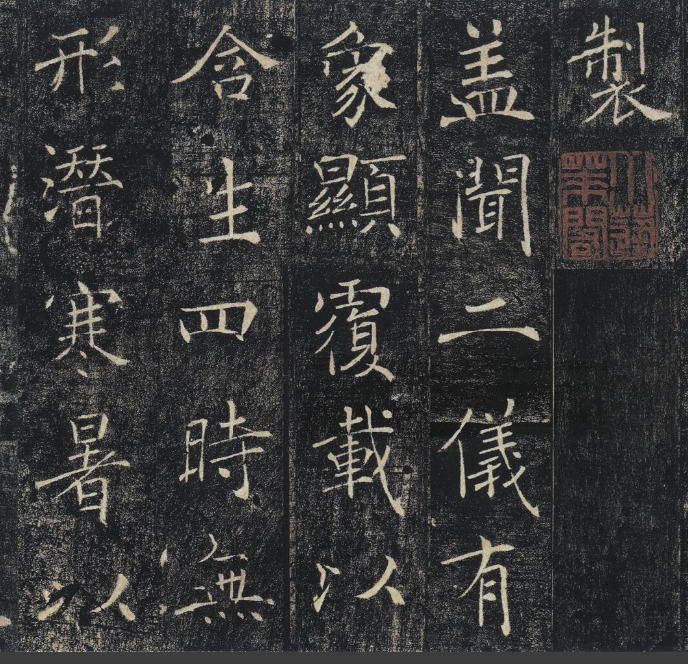 製
盖聞二儀有
象顯覆載以
含生四時無
形潛寒暑以